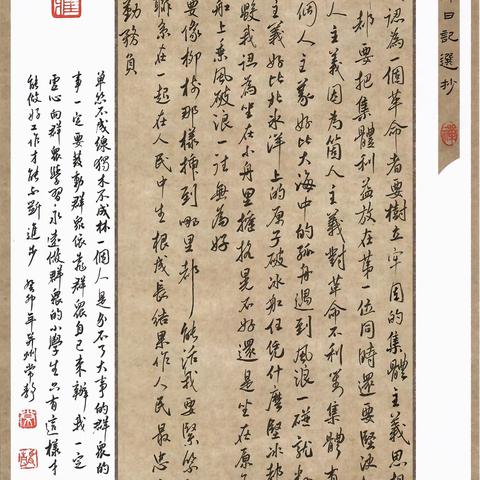 日記選抄
認為一個革命者要樹立牢固的集體主義思想
都要把集體利益放在第一位同時還要堅決
人主義因為箇人主義對革命不利對集體有
個人主義好比大海中的孤舟遇到風浪一碰就
主義好比北冰洋上的原子破冰船任凭什麼堅冰都
我認為坐在小舟里搖搖晃晃不好還是坐在原
船上乘風破浪一往無為好
要像柳樹那樣插到哪里都能活我要緊緊
聯系在一起在人民中生根成長結果作人民最忠
勤務員
單絲不成線獨木不成林一個人是辦不了大事的群眾的
事一定要發動群眾依靠群眾自己來辦我一定
虛心向群眾學習永遠做群眾的小學生只有這樣才
能做好工作才能不斷進步 癸卯年